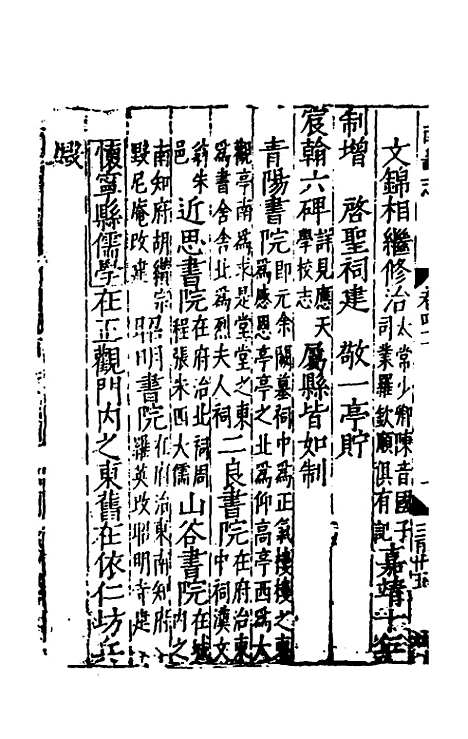 文錦相繼修治太常少卿陳音國子
司業羅欽順俱有記嘉靖十年
制增　啓聖祠建　敬一亭貯
宸翰六碑詳見應天
學校志屬縣皆如制
青陽書院即元余闕墓祠中為正氣樓樓之東
為應恩亭亭之北為仰高亭西為大
觀亭南為求是堂堂之東
為書舍舍北為烈夫人祠二良書院在府治東
中祠漢文
翁朱
邑近思書院在府治北祠周
程張朱四大儒山谷書院在城
內之
南知府胡纘宗
毀尼庵改建昭明書院在府治東南知府
羅英改昭明寺建
懷寧縣儒學在正觀門內之東舊在依仁坊兵
燬